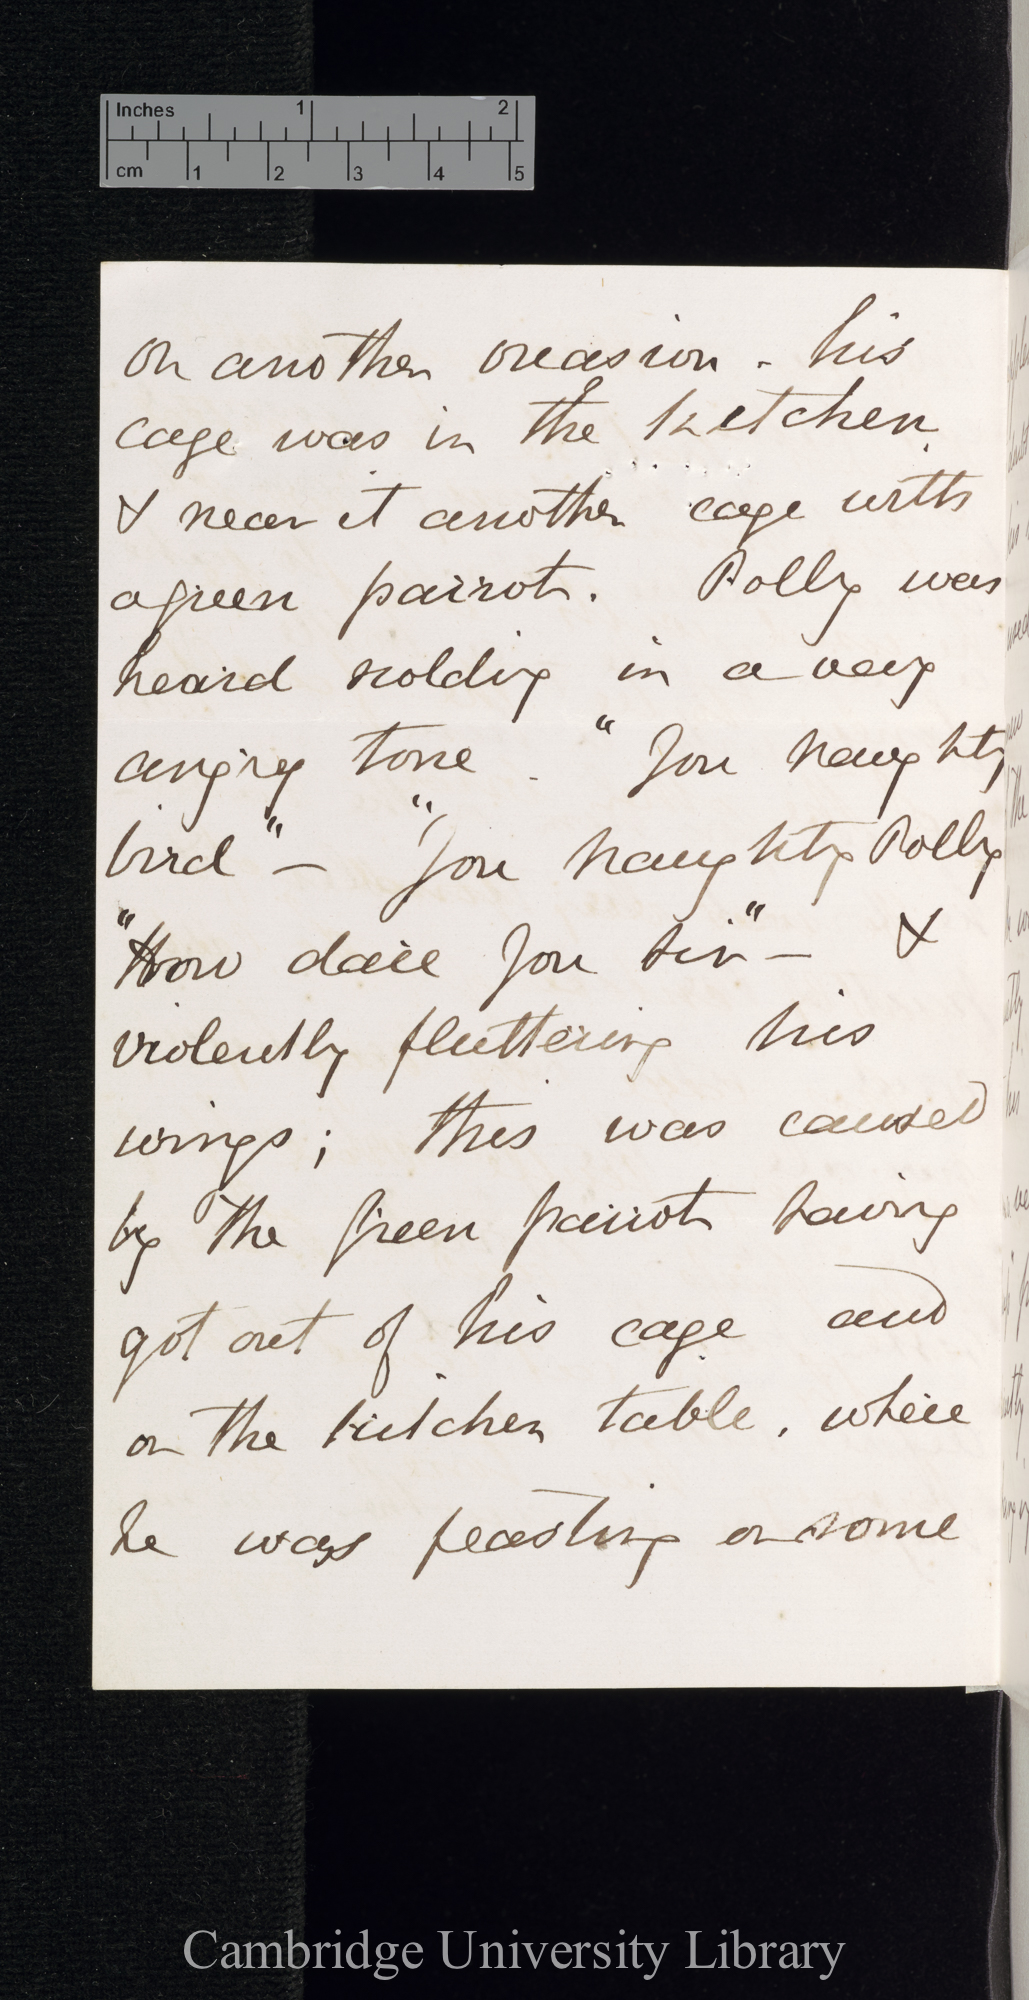 Inches 1 2
cm 1 2 3 4 5
on another occasion - his
cage was in the kitchen
& near it another cage with
a green parrot. Polly was
heard scolding in a very
angry tone - "You naughty
bird" - "You naughty Polly
"How dare you Sir" - &
violently fluttering his
wings; this was caused
by the green parrot having
got out of his cage and
on the kitchen table, where
he was feasting on some
Cambridge University Library